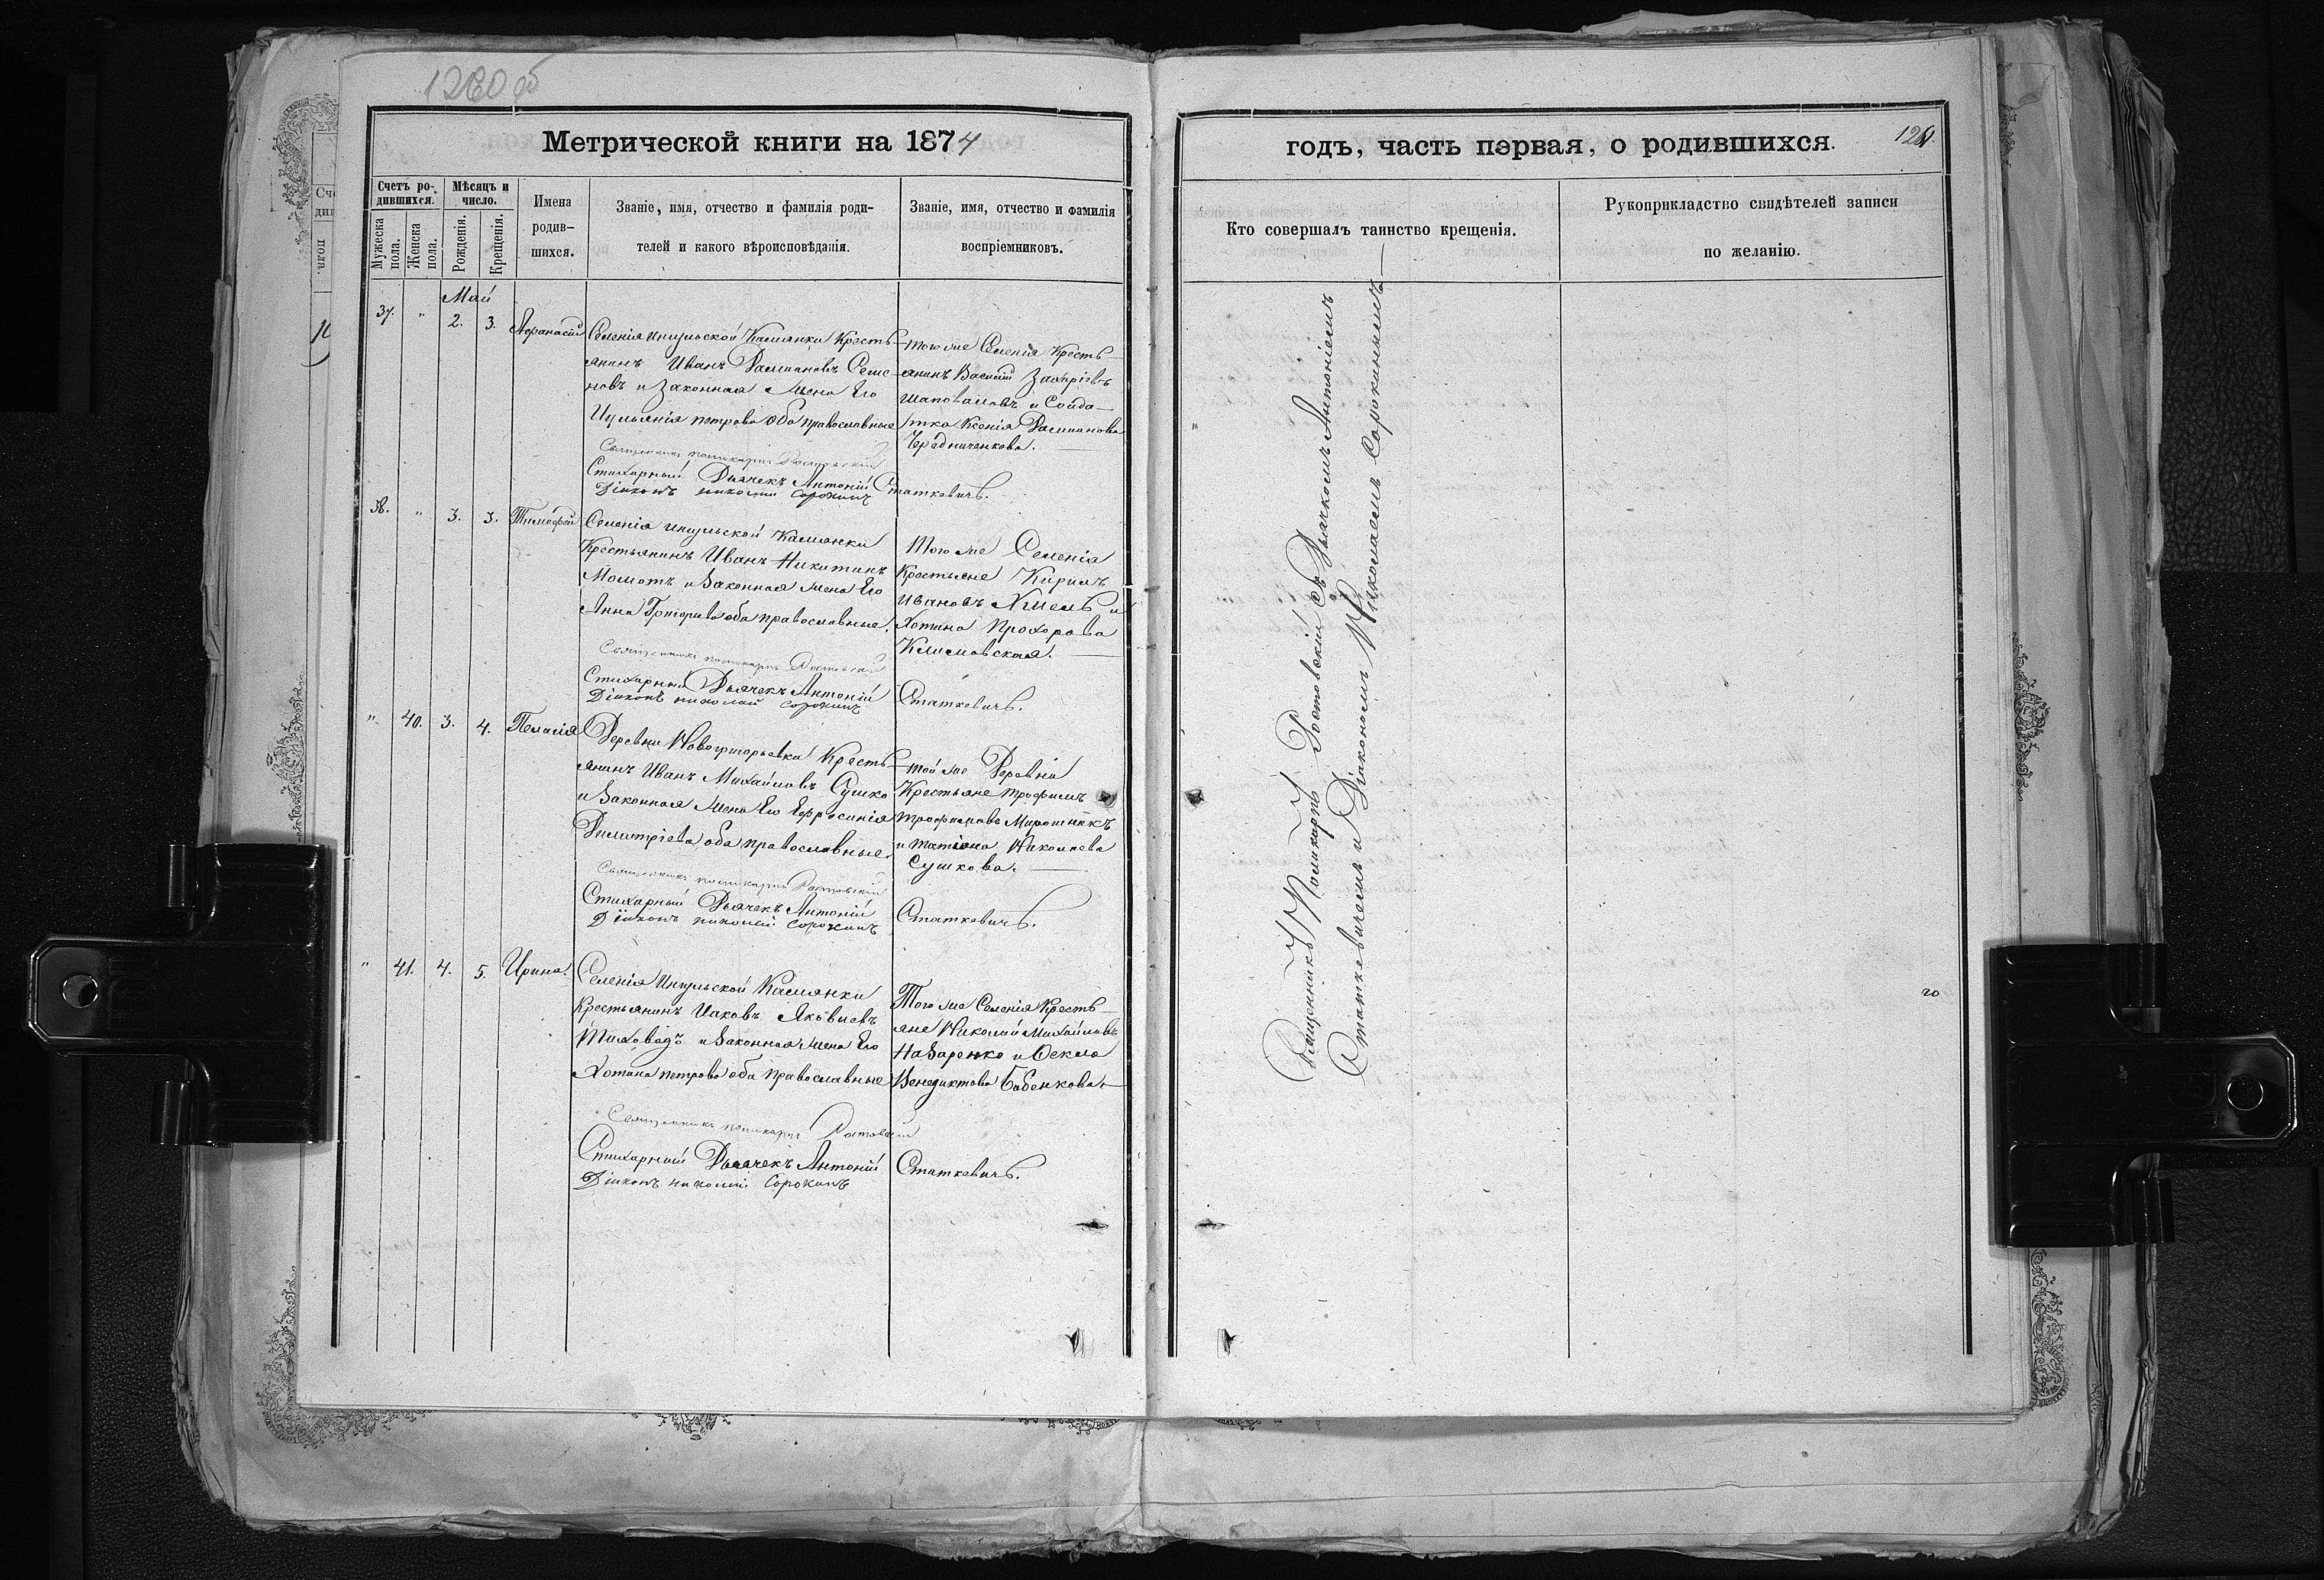 1260 об
Метрической книги на 1874
Счетъ ро-
дившихся.
Мужеска
пола.
Женска
пола.
Мѣсяцъ и
число.
Рожденія.
Крещенія.
Имена
родив-
шихся.
Званіе, имя, отчество и фамилія роди-
телей и какого вѣроисповѣданія.
Званіе, имя, отчество и фамилія
воспріемниковъ.
Май
37. " 2. 3. Афанасій
Селенія Ингульской Камянки Кресть-
янинъ Иванъ Даміановъ Семе-
новъ и Законная Жена Его
Иульянія петрова Оба православные
Того же Селенія Кресть-
янинъ Василій
Шаповаловъ и Солда-
тка Ксенія Даміанова
Чередниченкова.
Священникъ поликарпъ Ростовскій
Стихарный Дьячекъ Антоній Статкевичъ.
Діаконъ николай Сорокинъ
38. " 3. 3. Тимофей
Селенія ингульской Камянки
Крестьянинъ Иванъ Никитинъ
Момотъ и Законная жена Его
Анна Григориева оба православные.
Того же Селенія
Крестьяне Кирилъ
Ивановъ Хмель и
Хотина Прохорова
Климовская.
Священникъ поликарпъ Ростовскій
Стихарный Дьячекъ Антоній Статкевичъ.
Діаконъ николай Сорокинъ
" 40. 3. 4. Пелагія
Деревни Новогригорьевки Кресть-
янинъ Иванъ Михайловъ Сушко
и Законная Жена Его Ефросинія
Димитріева оба православные.
той же Деревни
Крестьяне трофимъ
трофимовъ Мирошникъ
и татіана Николаева
Сушкова.
Священникъ поликарпъ Ростовскій
Стихарный Дьячекъ Антоній Статкевичъ.
Діаконъ николай Сорокинъ
" 41. 4. 5. Ирина.
Селенія Ингульской Камянки
Крестьянинъ Иаковъ Яковлевъ
Тиховидъ и Законная Жена Его
Хотина петрова оба православные
Того же Селенія Кресть-
яне Николай Михайловъ
Назаренко и Фекла
Венедиктова Бабенкова
Священникъ поликарпъ Ростовскій
Стихарный Дьячекъ Антоній Статкевичъ.
Діаконъ николай Сорокинъ
годъ, часть первая, о родившихся.
Кто совершалъ таинство крещенія.
Рукоприкладство свидѣтелей записи
по желанію.
Священникъ Поликарпъ Ростовскій съ Дьячкомъ Антоніемъ
Статкевичемъ и Діакономъ Николаемъ Сорокинымъ
20
Сче
див
пола.